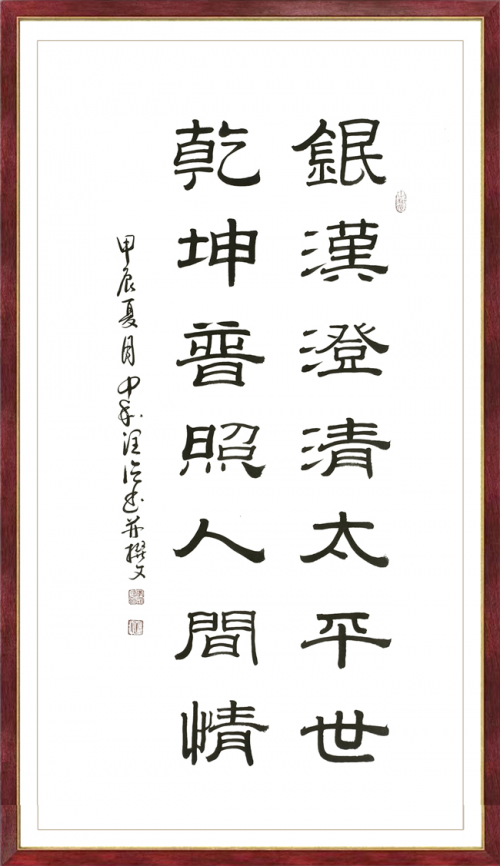 銀漢澄清太平世
乾坤普照人間情
甲辰夏月中秋 并撰文